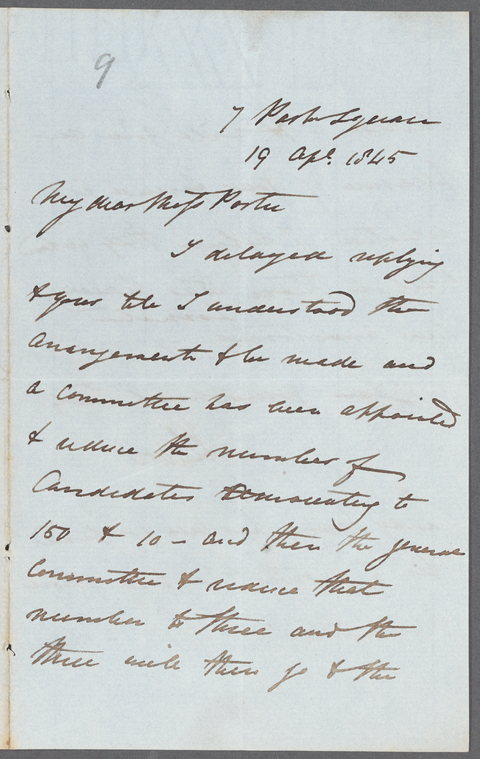 9
7 Park Square
19 Apl. 1845
My dear Miss Porter
I delayed replying
to your till I understood the
arrangements to be made and
a committee has been appointed
to reduce the number of
Candidates amounting to
150 to 10 - and then the general
Committee to reduce that
number to three and the
three will then go to the